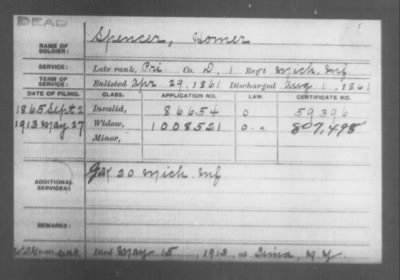 DEAD
NAME OF SOLDIER: Spencer, Homer
SERVICE: Late rank, Pri Co. D, 1 Reg't Mich. Inf
TERM OF SERVICE: Enlisted Apr. 29, 1861 Discharged Aug 1, 1861
DATE OF FILING. CLASS. APPLICATION NO. LAW. CERTIFICATE NO.
1865 Sept 2 Invalid, 86654 0 59396
1913 May 27 Widow, 1008521 0 807,498
Minor,
ADDITIONAL SERVICES: 20 Mich. Inf
REMARKS:
Died May 15, 1913, at Lima, N.Y.